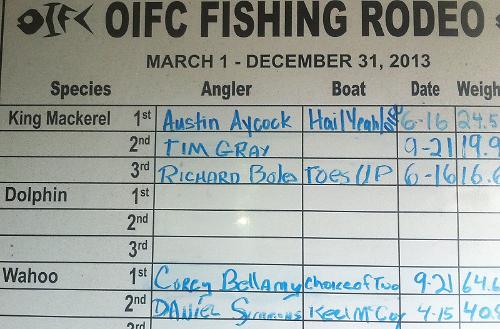 OIFC FISHING RODEO
MARCH 1 - DECEMBER 31, 2013
Species Angler Boat Date Weigh
King Mackerel 1st Austin Aycock Hail Yeah! 6-16 24.5
2nd TIM GRAY 9-21 19.9
3rd RICHARD Boles TOES UP 6-16 16.6
Dolphin 1st
2nd
3rd
Wahoo 1st Corey Bellamy Choice of Two 9-21 64.6
2nd DANIEL Simmons Keeli McCoy 4-15 40
3rd